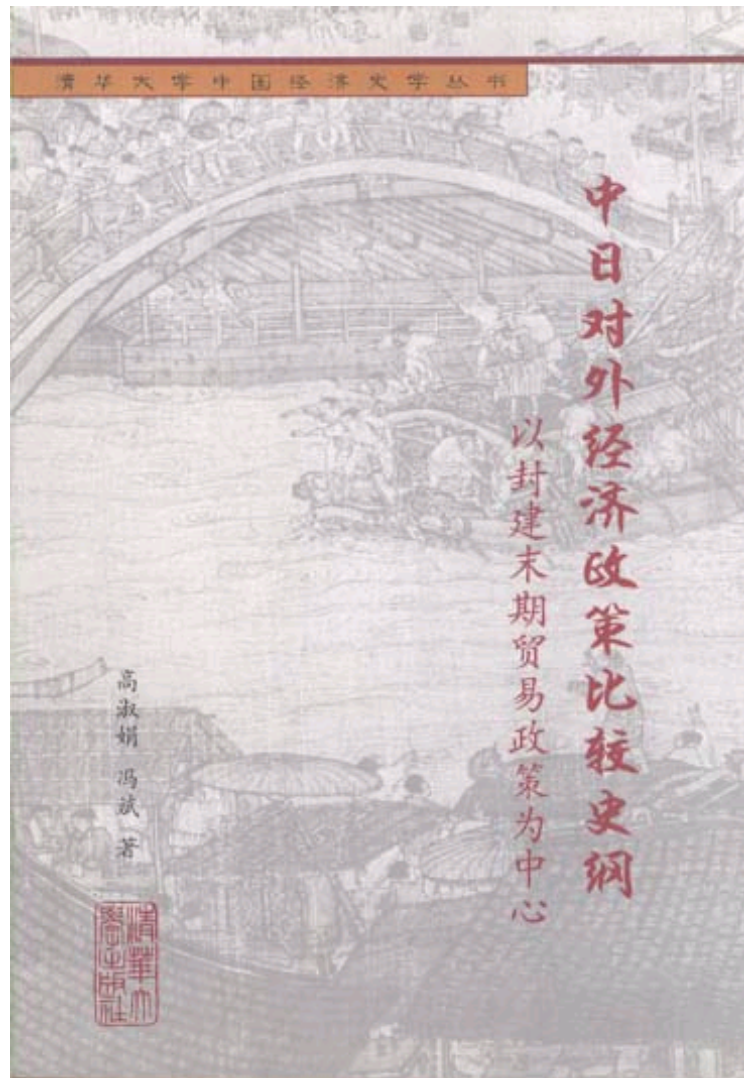 清华大学中国经济史学丛书
中日对外经济政策比较史纲
以封建末期贸易政策为中心
高淑娟 冯斌 著
清華大
學出版社